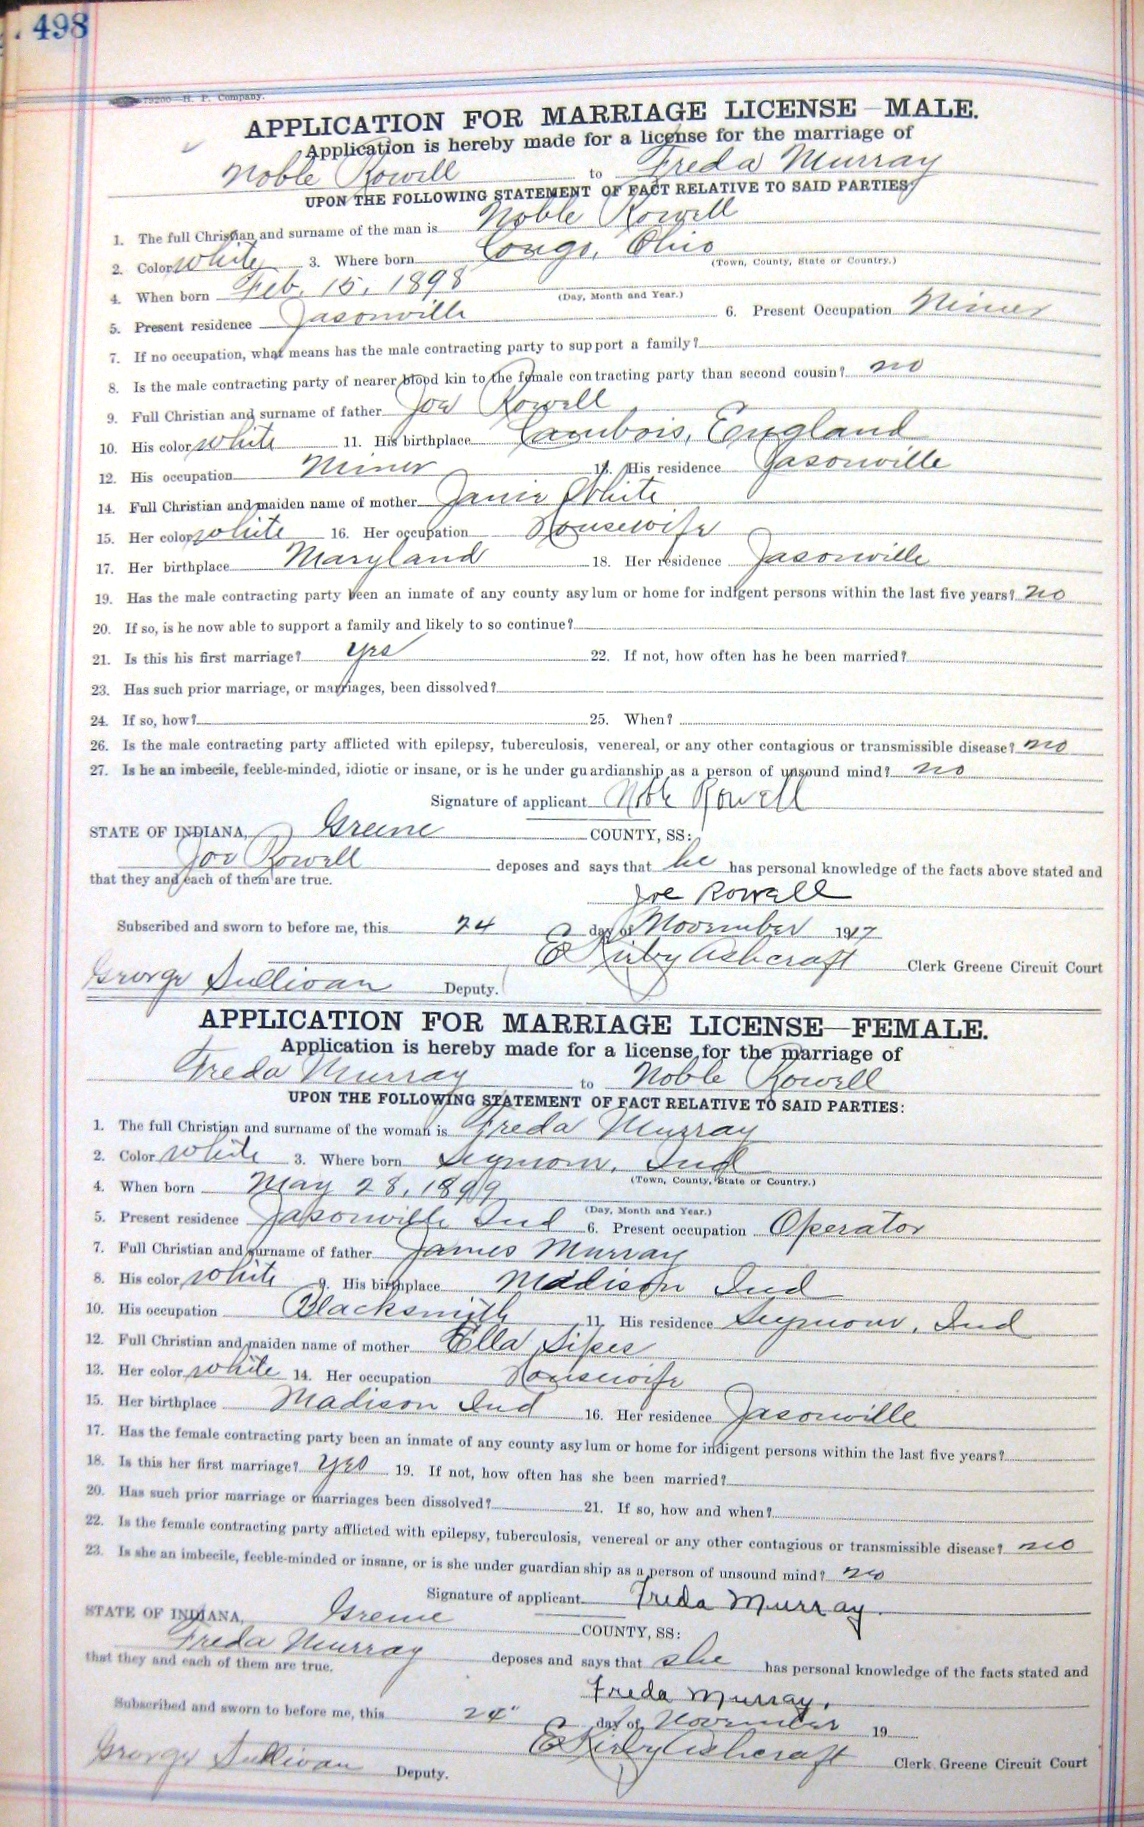 498
79200—H. P. Company.
APPLICATION FOR MARRIAGE LICENSE—MALE.
Application is hereby made for a license for the marriage of
Noble Rowell to Freda Murray
UPON THE FOLLOWING STATEMENT OF FACT RELATIVE TO SAID PARTIES:
1. The full Christian and surname of the man is Noble Rowell
2. Color white 3. Where born Congo, Ohio
(Town, County, State or Country.)
4. When born Feb. 15, 1898
(Day, Month and Year.)
5. Present residence Jasonville 6. Present Occupation Miner
7. If no occupation, what means has the male contracting party to support a family?
8. Is the male contracting party of nearer blood kin to the female contracting party than second cousin? no
9. Full Christian and surname of father Joe Rowell
10. His color white 11. His birthplace Cambois, England
12. His occupation Miner 13. His residence Jasonville
14. Full Christian and maiden name of mother Janie White
15. Her color white 16. Her occupation Housewife
17. Her birthplace Maryland 18. Her residence Jasonville
19. Has the male contracting party been an inmate of any county asylum or home for indigent persons within the last five years? no
20. If so, is he now able to support a family and likely to so continue?
21. Is this his first marriage? yes 22. If not, how often has he been married?
23. Has such prior marriage, or marriages, been dissolved?
24. If so, how? 25. When?
26. Is the male contracting party afflicted with epilepsy, tuberculosis, venereal, or any other contagious or transmissible disease? no
27. Is he an imbecile, feeble-minded, idiotic or insane, or is he under guardianship as a person of unsound mind? no
Signature of applicant Noble Rowell
STATE OF INDIANA, Greene COUNTY, SS:
Joe Rowell deposes and says that he has personal knowledge of the facts above stated and
that they and each of them are true.
Joe Rowell
Subscribed and sworn to before me, this 24 day of November 1917
E Kirby Ashcraft Clerk Greene Circuit Court
George Sullivan Deputy.
APPLICATION FOR MARRIAGE LICENSE—FEMALE.
Application is hereby made for a license for the marriage of
Freda Murray to Noble Rowell
UPON THE FOLLOWING STATEMENT OF FACT RELATIVE TO SAID PARTIES:
1. The full Christian and surname of the woman is Freda Murray
2. Color white 3. Where born Seymour, Ind
(Town, County, State or Country.)
4. When born May 28, 1899
(Day, Month and Year.)
5. Present residence Jasonville Ind 6. Present occupation Operator
7. Full Christian and surname of father James Murray
8. His color white 9. His birthplace Madison Ind
10. His occupation Blacksmith 11. His residence Seymour, Ind
12. Full Christian and maiden name of mother Ella Sipes
13. Her color white 14. Her occupation Housewife
15. Her birthplace Madison Ind 16. Her residence Jasonville
17. Has the female contracting party been an inmate of any county asylum or home for indigent persons within the last five years?
18. Is this her first marriage? yes 19. If not, how often has she been married?
20. Has such prior marriage or marriages been dissolved? 21. If so, how and when?
22. Is the female contracting party afflicted with epilepsy, tuberculosis, venereal or any other contagious or transmissible disease? no
23. Is she an imbecile, feeble-minded or insane, or is she under guardianship as a person of unsound mind? no
Signature of applicant Freda Murray.
STATE OF INDIANA, Greene COUNTY, SS:
Freda Murray deposes and says that she has personal knowledge of the facts stated and
that they and each of them are true.
Freda Murray.
Subscribed and sworn to before me, this 24" day of November 19
E Kirby Ashcraft Clerk Greene Circuit Court
George Sullivan Deputy.